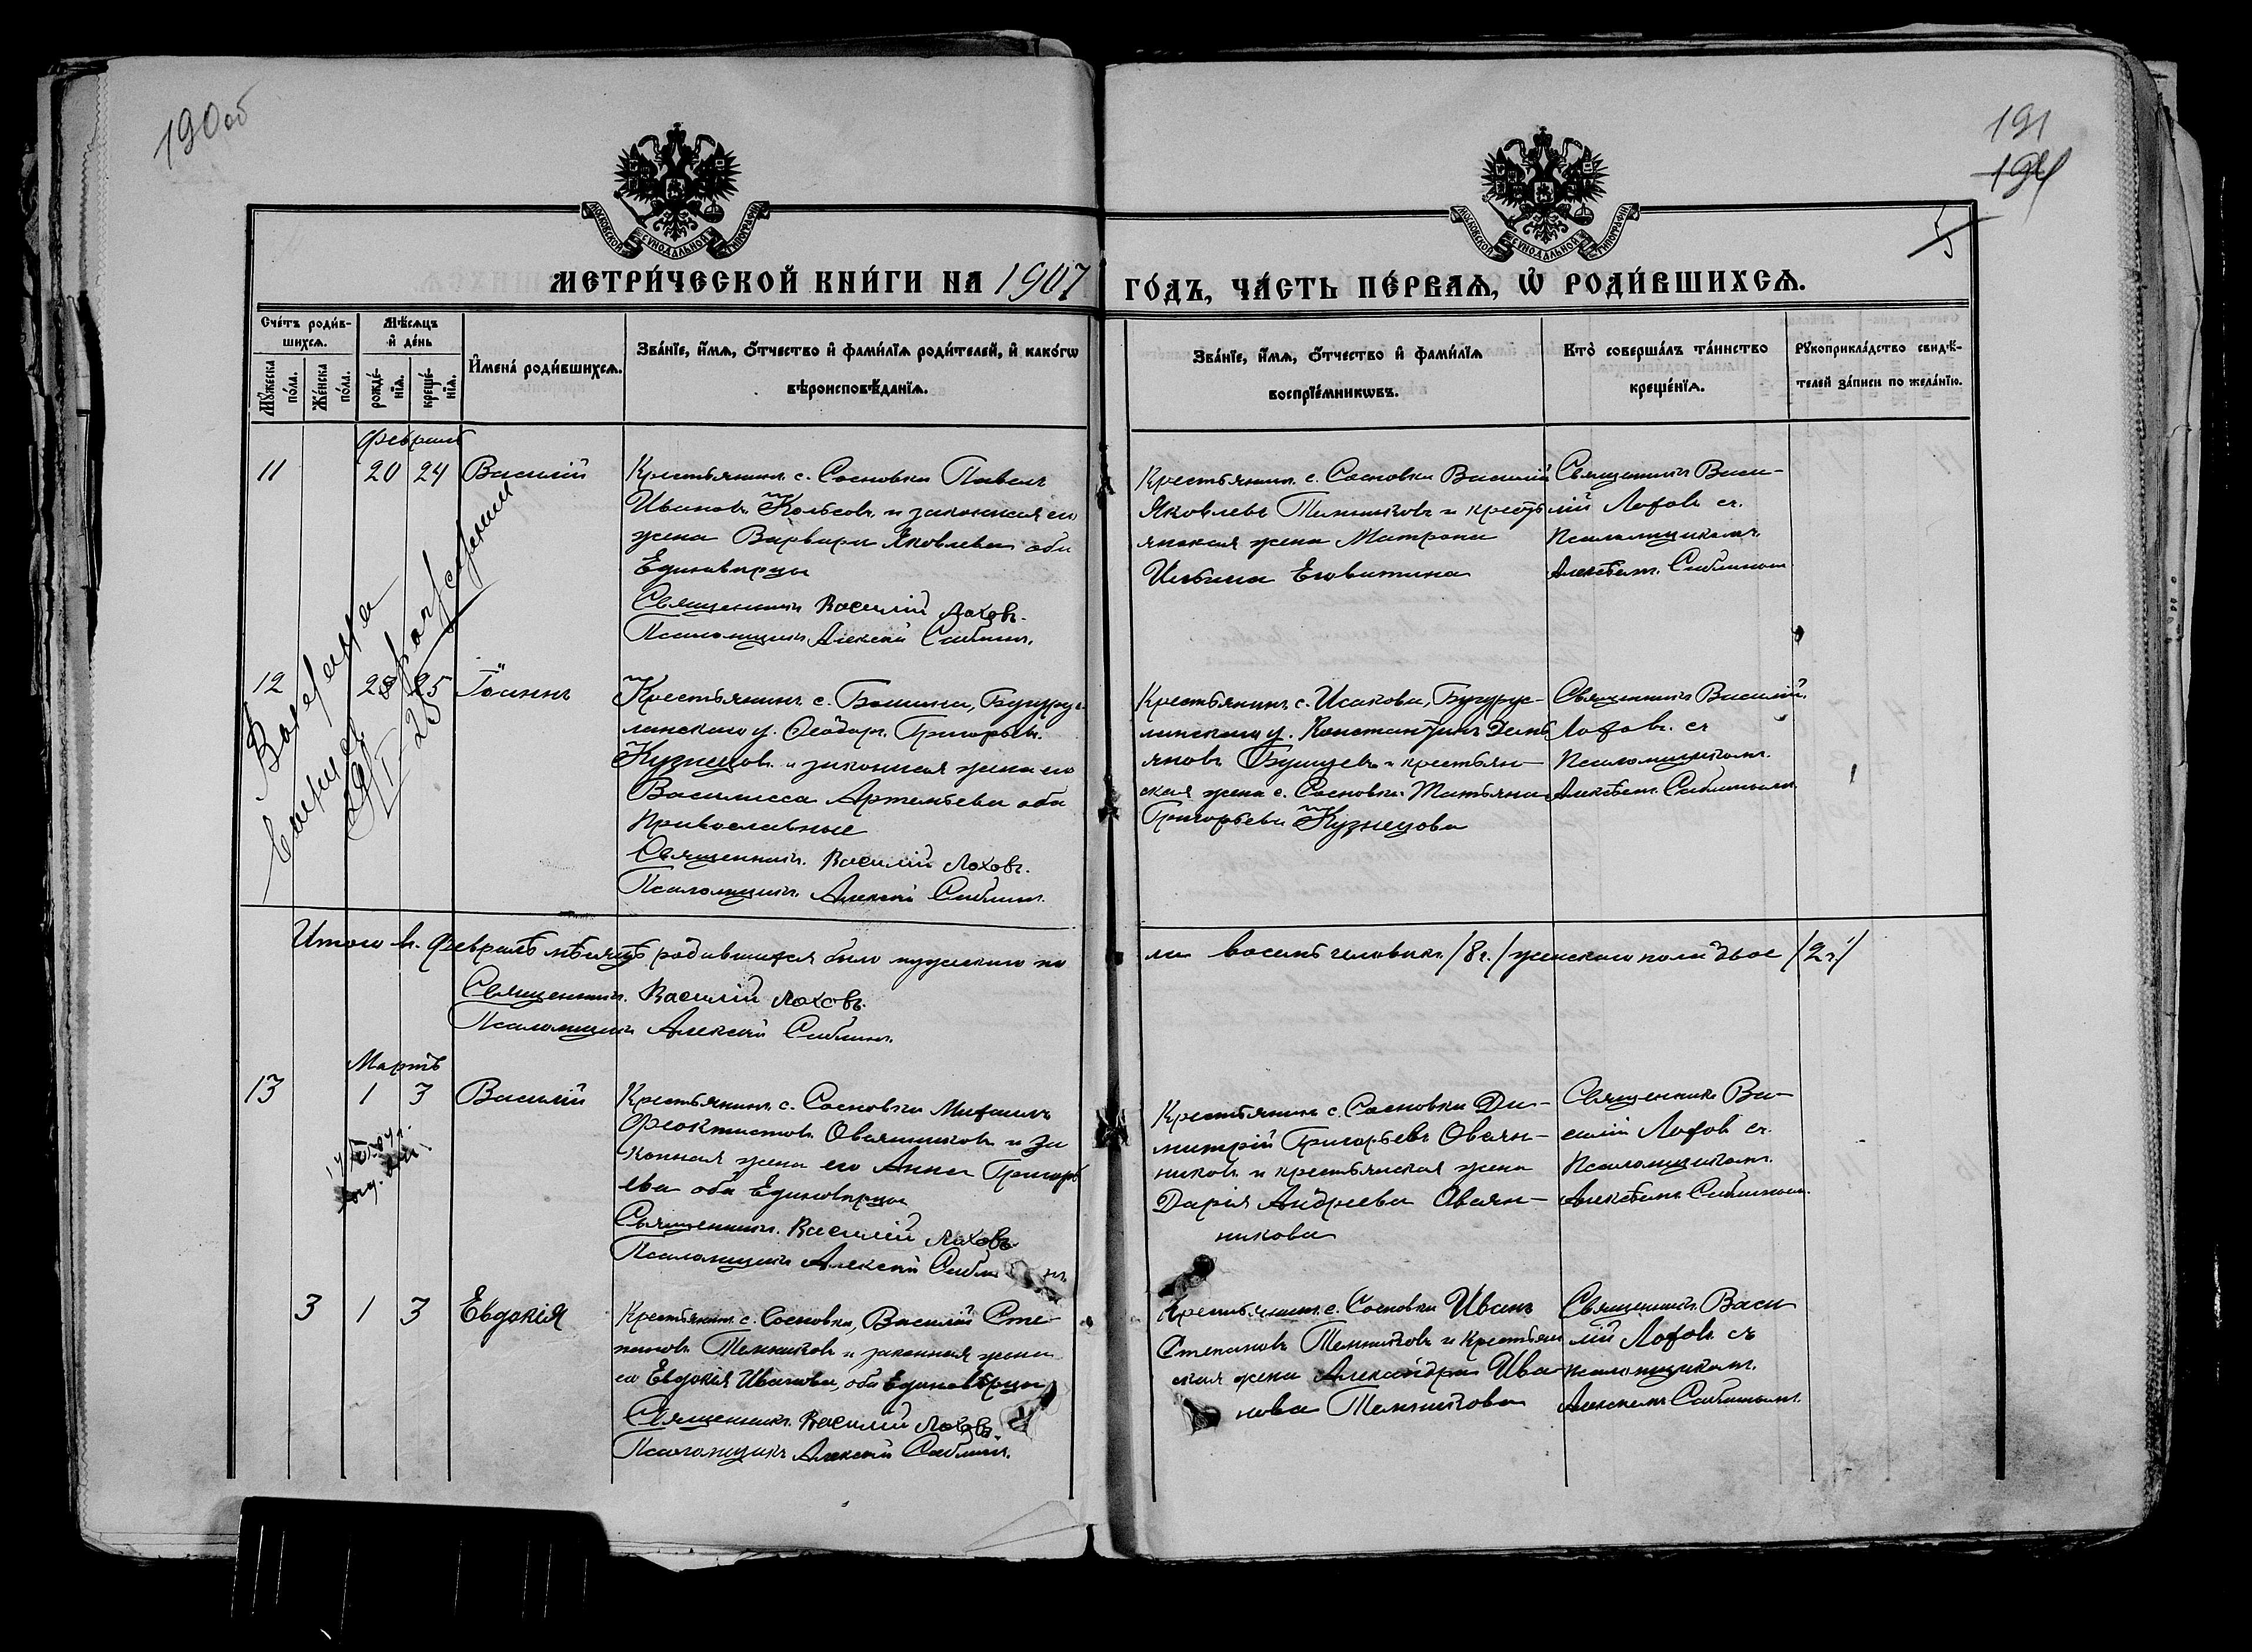 190 об
191
194
5
МОСКОВСКОЙ СѴНОДАЛЬНОЙ ТИПОГРАФІИ
МОСКОВСКОЙ СѴНОДАЛЬНОЙ ТИПОГРАФІИ
МЕТРИ́ЧЕСКОЙ КНИ́ГИ НА 1907 ГО́ДЪ, ЧА́СТЬ ПЕ́РВАѦ, Ѡ҆ РОДИ́ВШИХСѦ.
Сче́тъ роди́в-
шихсѧ.
Мѣ́сѧцъ
и҆ де́нь
И҆мена̀ роди́вшихсѧ.
Зва́нїе, и҆́мѧ, ѻ҆́тчество и҆ фами́лїѧ роди́телей, и҆ како́гѡ
вѣроисповѣ́данїѧ.
Зва́нїе, и҆́мѧ, ѻ҆́тчество и҆ фами́лїѧ
воспрїе́мникѡвъ.
Кто̀ соверша́лъ та́инство
креще́нїѧ.
Рꙋкоприкла́дство свидѣ́-
телей за́писи по жела́нїю.
Мꙋ́жеска
по́ла.
Же́нска
по́ла.
рожде́-
нїѧ.
креще́-
нїѧ.
Февраль
11 20 24 Василій
Крестьянинъ с. Сосновки Павелъ
Ивановъ Кольсовъ и законная его
жена Варвара Яковлева оба
Единоверцы
Священникъ Василій Лоховъ.
Псаломщикъ Алексѣй Саблинъ.
Крестьянинъ с. Сосновки Василій
Яковлевъ Темниковъ и кресть
янская жена Матрона
Ильина Еговитина
Священникъ Васи-
лій Лоховъ съ
Псаломщикомъ
Алексѣемъ Саблинымъ
12 25 Іоаннъ
Крестьянинъ с. Бугуру-
сланскаго у. Ѳеодоръ Григорьевъ
Кузнецовъ и законная жена его
Василисса Артемьева оба
православные
Священникъ Василій Лоховъ.
Псаломщикъ Алексѣй Саблинъ.
Крестьянинъ с. Исакова, Бугурус-
ланскаго у. Константинъ Демь
яновъ и крестьян-
ская жена с. Сосновки Татьяна
Григорьева Кузнецова
Священникъ Василій
Лоховъ съ
Псаломщикомъ
Алексѣемъ Саблинымъ
Итого въ Февралѣ мѣсяцѣ родившихся было мужескаго по
ла восемь человѣкъ /8 ч./ женскаго пола двое /2 ч/
Священникъ Василій Лоховъ.
Псаломщикъ Алексѣй Саблинъ.
Мартъ
13 1 3 Василій
Крестьянинъ с. Сосновки Михаилъ
Феоктистовъ Овсянниковъ и за
конная жена его Анна Григорь
ева оба Единоверцы
Священникъ Василій Лоховъ.
Псаломщикъ Алексѣй Саблинъ
Крестьянинъ с. Сосновки Ди-
митрій Григорьевъ Овсян-
никовъ и крестьянская жена
Дарія Андреева Овсян-
никова
Священникъ Ва-
силій Лоховъ съ
Псаломщикомъ
Алексѣемъ Саблинымъ
3 1 3 Евдокія
Крестьянинъ с. Сосновки, Василій Сте-
пановъ Темниковъ и законная жена
его Евдокія Иванова, оба Единовѣрцы
Священникъ Василій Лоховъ.
Псаломщикъ Алексѣй Саблинъ.
Крестьянинъ с. Сосновки Иванъ
Степановъ Темниковъ и Крестьян
ская жена Александра Ива
нова Темникова
Священникъ Васи
лій Лоховъ съ
псаломщикомъ
Алексѣемъ Саблинымъ.